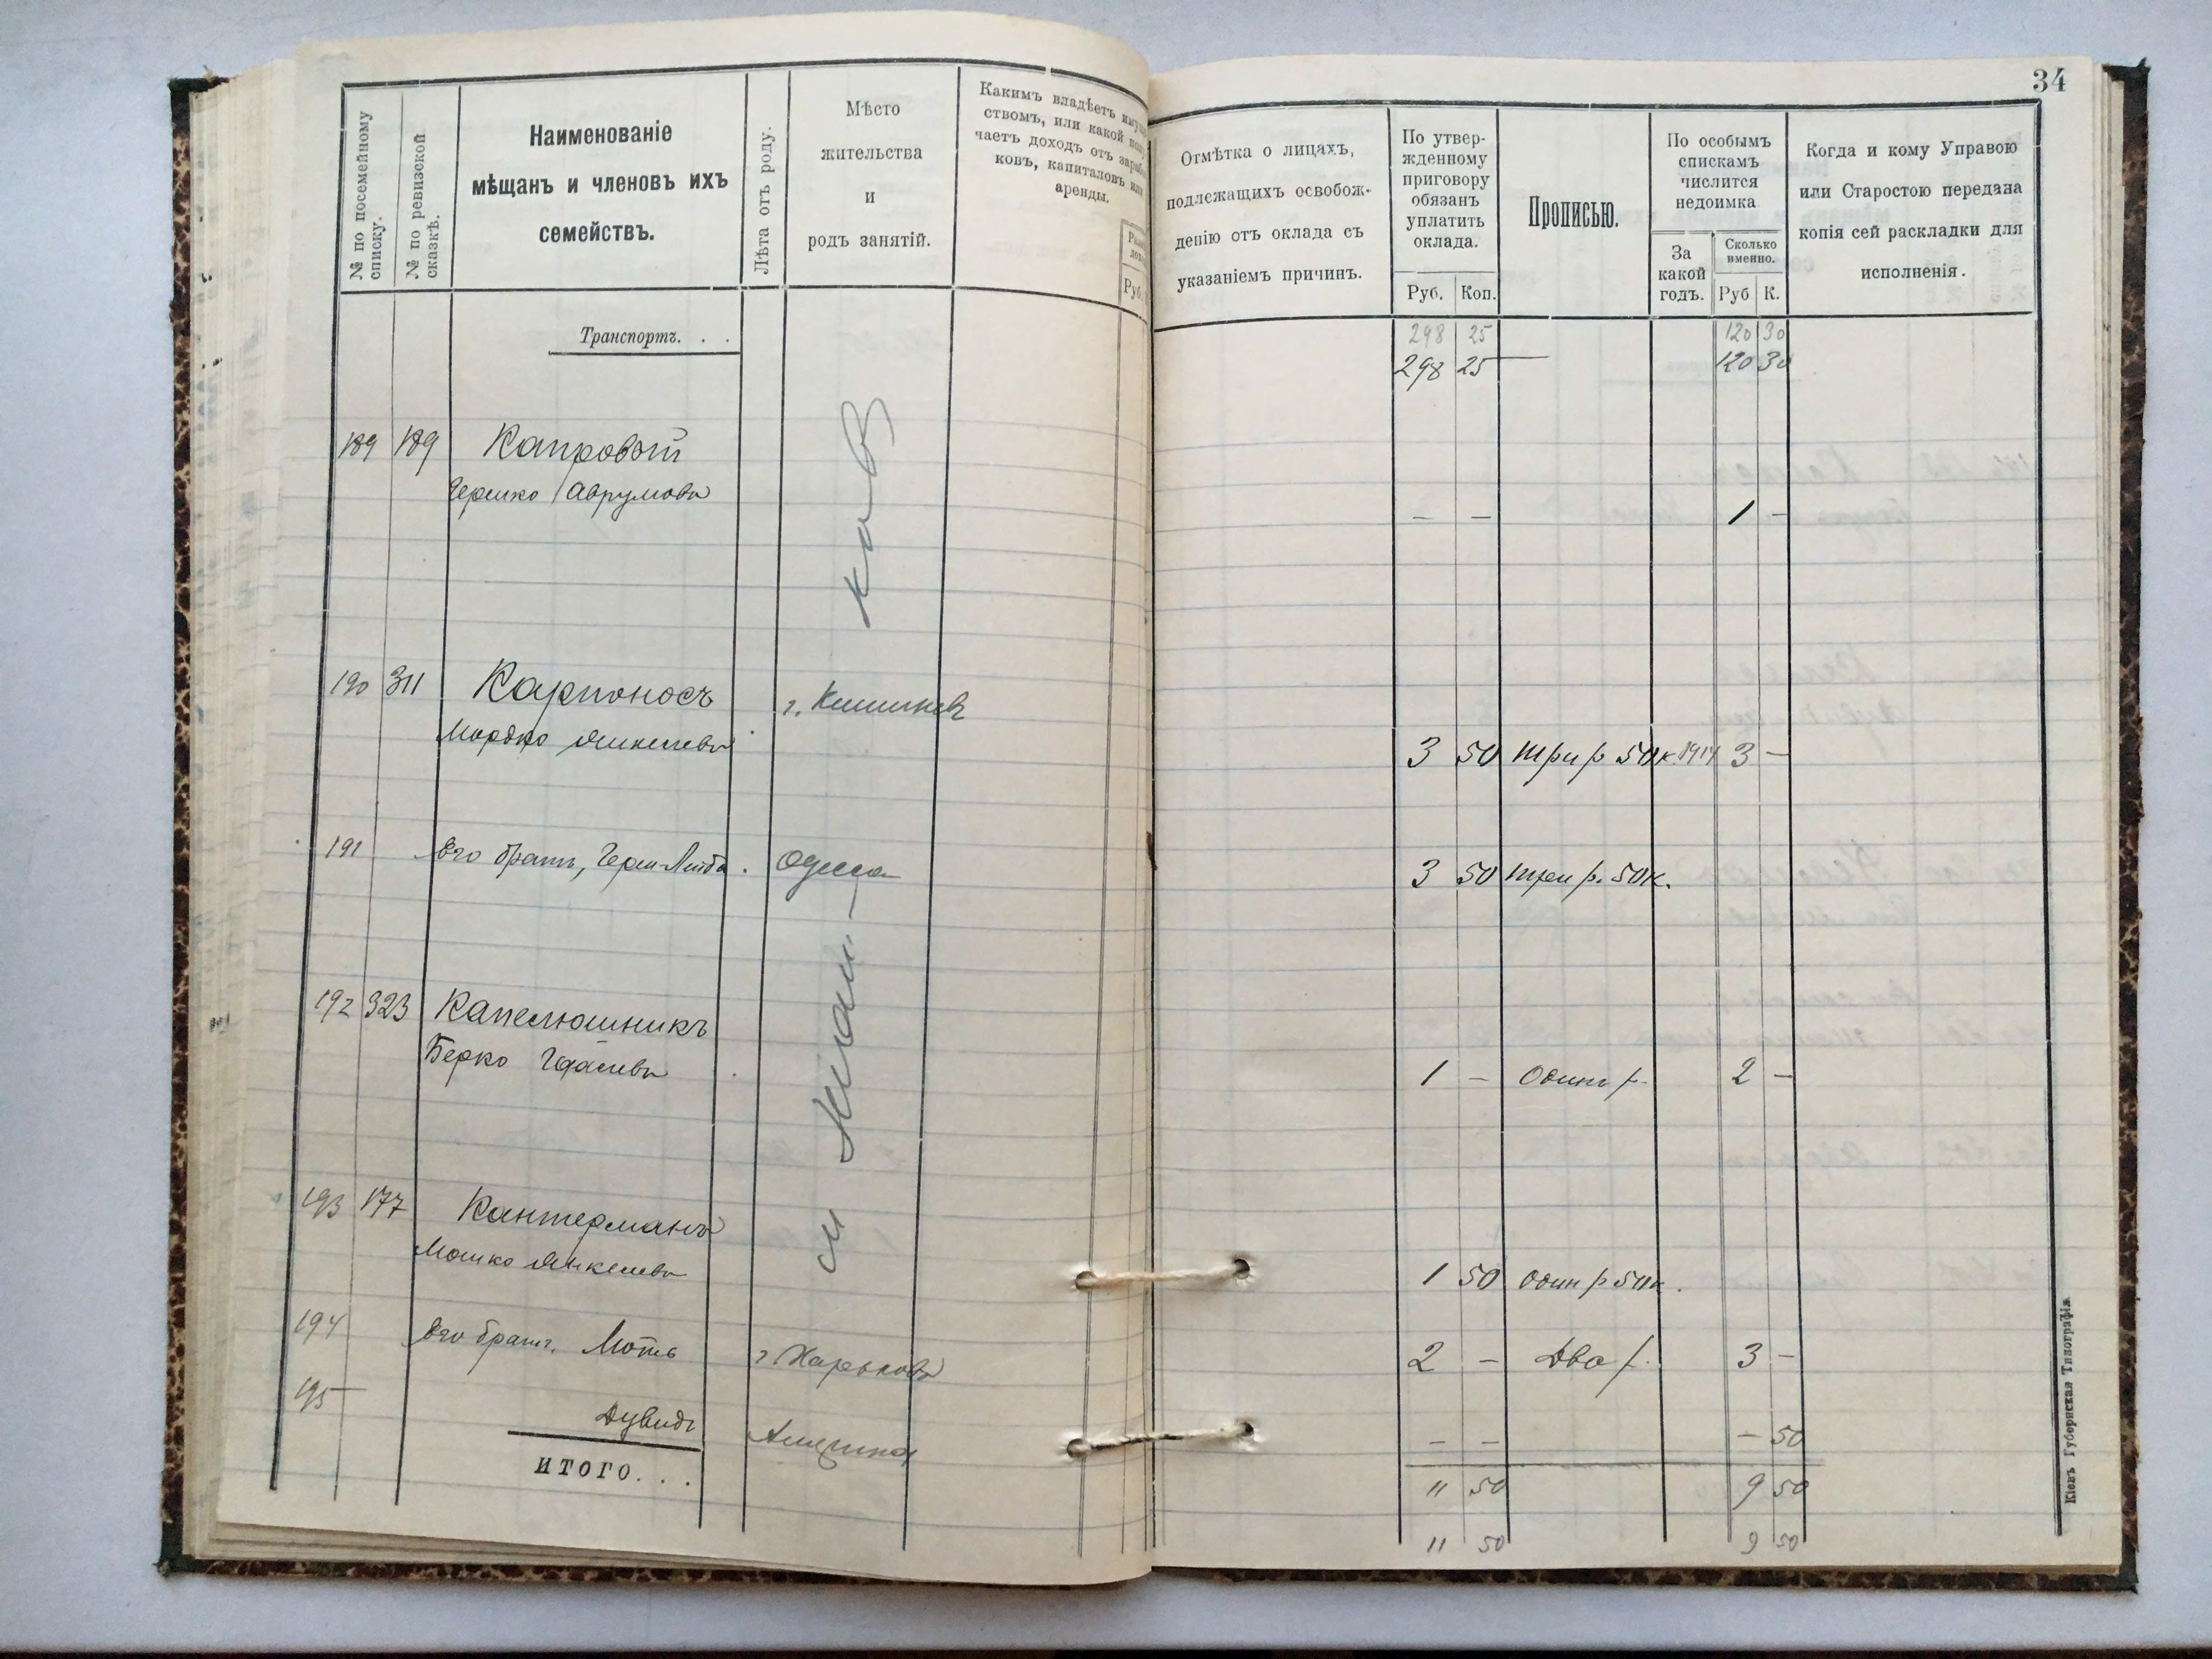 34
№ по посемейному списку.
№ по ревизской сказкѣ.
Наименованіе
мѣщанъ и членовъ ихъ
семействъ.
Лѣта отъ роду.
Мѣсто
жительства
и
родъ занятій.
Какимъ владѣетъ
ствомъ, или какой
чаетъ доходъ отъ
ковъ, капиталовъ или
аренды.
Руб.
Отмѣтка о лицахъ,
подлежащихъ освобож-
денію отъ оклада съ
указаніемъ причинъ.
По утвер-
жденному
приговору
обязанъ
уплатить
оклада.
Руб. Коп.
Прописью.
По особымъ
спискамъ
числится
недоимка
За
какой
годъ.
Сколько
именно.
Руб К.
Когда и кому Управою
или Старостою передана
копія сей раскладки для
исполненія.
Транспортъ. . .
298 25 120 30
298 25 — 120 30
189 189 Капровый
Гершко Аврумовъ
— — 1 —
190 311 Карпоносъ г. Кишинев
Мордко Янкелевъ
3 50 три р 50 к. 1914 3 —
191 Его братъ, Герш-Лейба. Одесса
3 50 три р. 50 к.
192 323 Капелюшникъ
Берко
1 — Один р. 2 —
193 177 Кантерманъ
Мошко Янкелевъ
1 50 один р 50 к.
194 Его братъ, Мотъ г. Харьковъ
2 — Два р. 3 —
195 Дувидъ
— — — 50
ИТОГО. . .
11 50 9 50
11 50 9 50
Кіевъ Губернская Типографія.